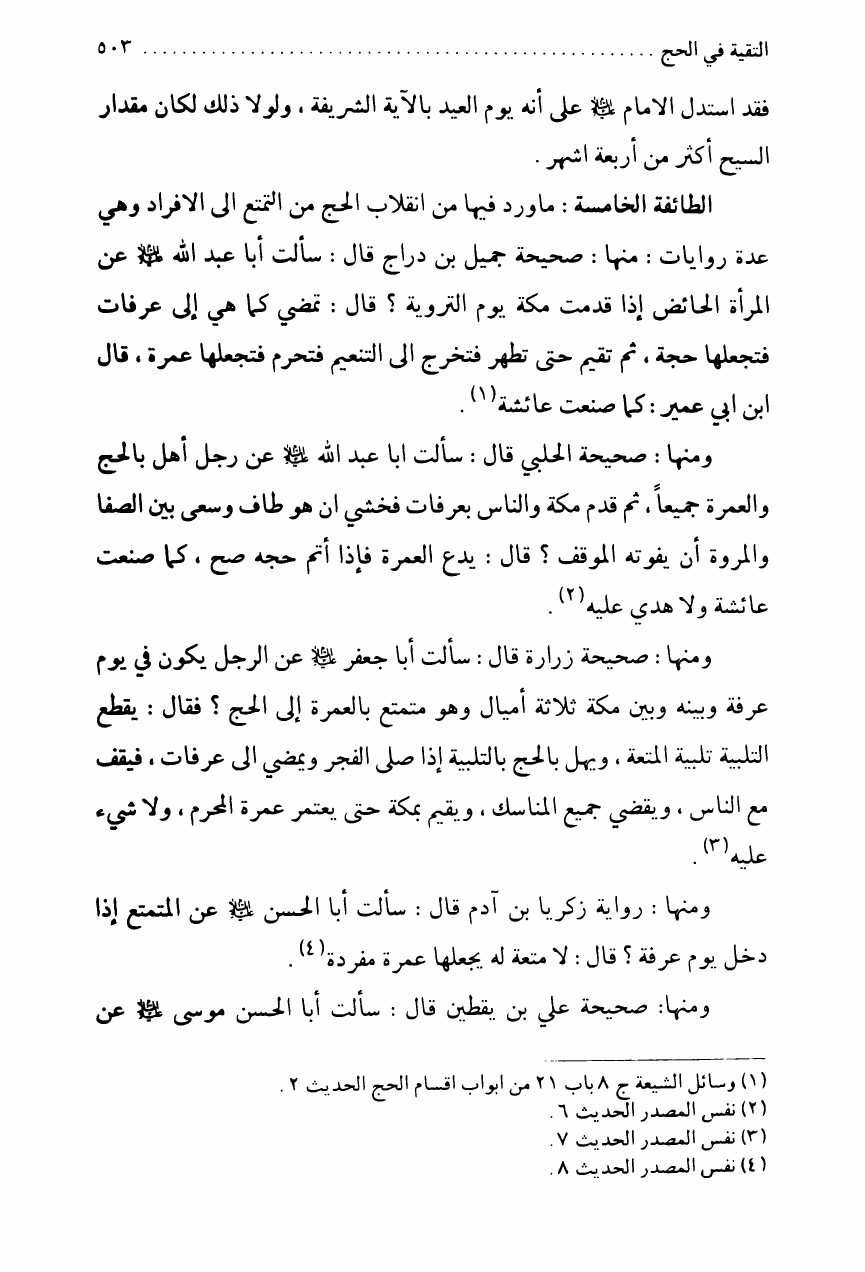 التقية في الحج ................................................... ٥٠٣
فقد استدل الامام عليه السلام على أنه يوم العيد بالآية الشريفة ، ولولا ذلك لكان مقدار
السيح أكثر من أربعة اشهر .
الطائفة الخامسة : ماورد فيها من انقلاب الحج من التمتع الى الافراد وهي
عدة روايات : منها : صحيحة جميل بن دراج قال : سألت أبا عبد الله عليه السلام عن
المرأة الحائض إذا قدمت مكة يوم التروية ؟ قال : تمضي كما هي إلى عرفات
فتجعلها حجة ، ثم تقيم حتى تطهر فتخرج الى التنعيم فتحرم فتجعلها عمرة ، قال
ابن ابي عمير : كما صنعت عائشة(١) .
ومنها : صحيحة الحلبي قال : سألت ابا عبد الله عليه السلام عن رجل أهل بالحج
والعمرة جميعاً ، ثم قدم مكة والناس بعرفات فخشي ان هو طاف وسعى بين الصفا
والمروة أن يفوته الموقف ؟ قال : يدع العمرة فإذا أتم حجه صح ، كما صنعت
عائشة ولا هدي عليه(٢) .
ومنها : صحيحة زرارة قال : سألت أبا جعفر عليه السلام عن الرجل يكون في يوم
عرفة وبينه وبين مكة ثلاثة أميال وهو متمتع بالعمرة إلى الحج ؟ فقال : يقطع
التلبية تلبية المتعة ، ويهل بالحج بالتلبية إذا صلى الفجر ويمضي الى عرفات ، فيقف
مع الناس ، ويقضي جميع المناسك ، ويقيم بمكة حتى يعتمر عمرة المحرم ، ولا شيء
عليه(٣) .
ومنها : رواية زكريا بن آدم قال : سألت أبا الحسن عليه السلام عن المتمتع إذا
دخل يوم عرفة ؟ قال : لا متعة له يجعلها عمرة مفردة(٤) .
ومنها: صحيحة علي بن يقطين قال : سألت أبا الحسن موسى عليه السلام عن
(١) وسائل الشيعة ج ٨ باب ٢١ من ابواب اقسام الحج الحديث ٢ .
(٢) نفس المصدر الحديث ٦ .
(٣) نفس المصدر الحديث ٧ .
(٤) نفس المصدر الحديث ٨ .